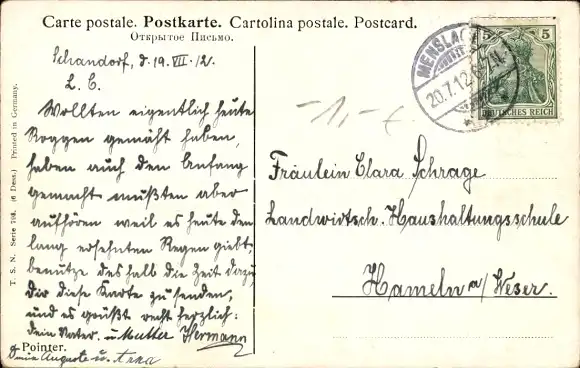 Carte postale. Postkarte. Cartolina postale. Postcard.
Открытое Письмо.
Schandorf, d. 19. VII. 12.
L. C.
Wollten eigentlich heute
Roggen gemäht haben,
haben auch den Anfang
gemacht mußten aber
aufhören weil es heute den
lang ersehnten Regen giebt,
benutze deshalb die Zeit dazu
Dir diese Karte zu senden,
und es grüßt recht herzlich:
dein Vater. u. Mutter Hermann
Auguste u. Anna
Pointer.
T. S. N. Serie (6 Dess.) Printed in Germany.
MENSLAGE
20.7.12
5 5
DEUTSCHES REICH
-1,- €
Fräulein Clara Schrage
Landwirtsch. Haushaltungsschule
Hameln a/Weser.